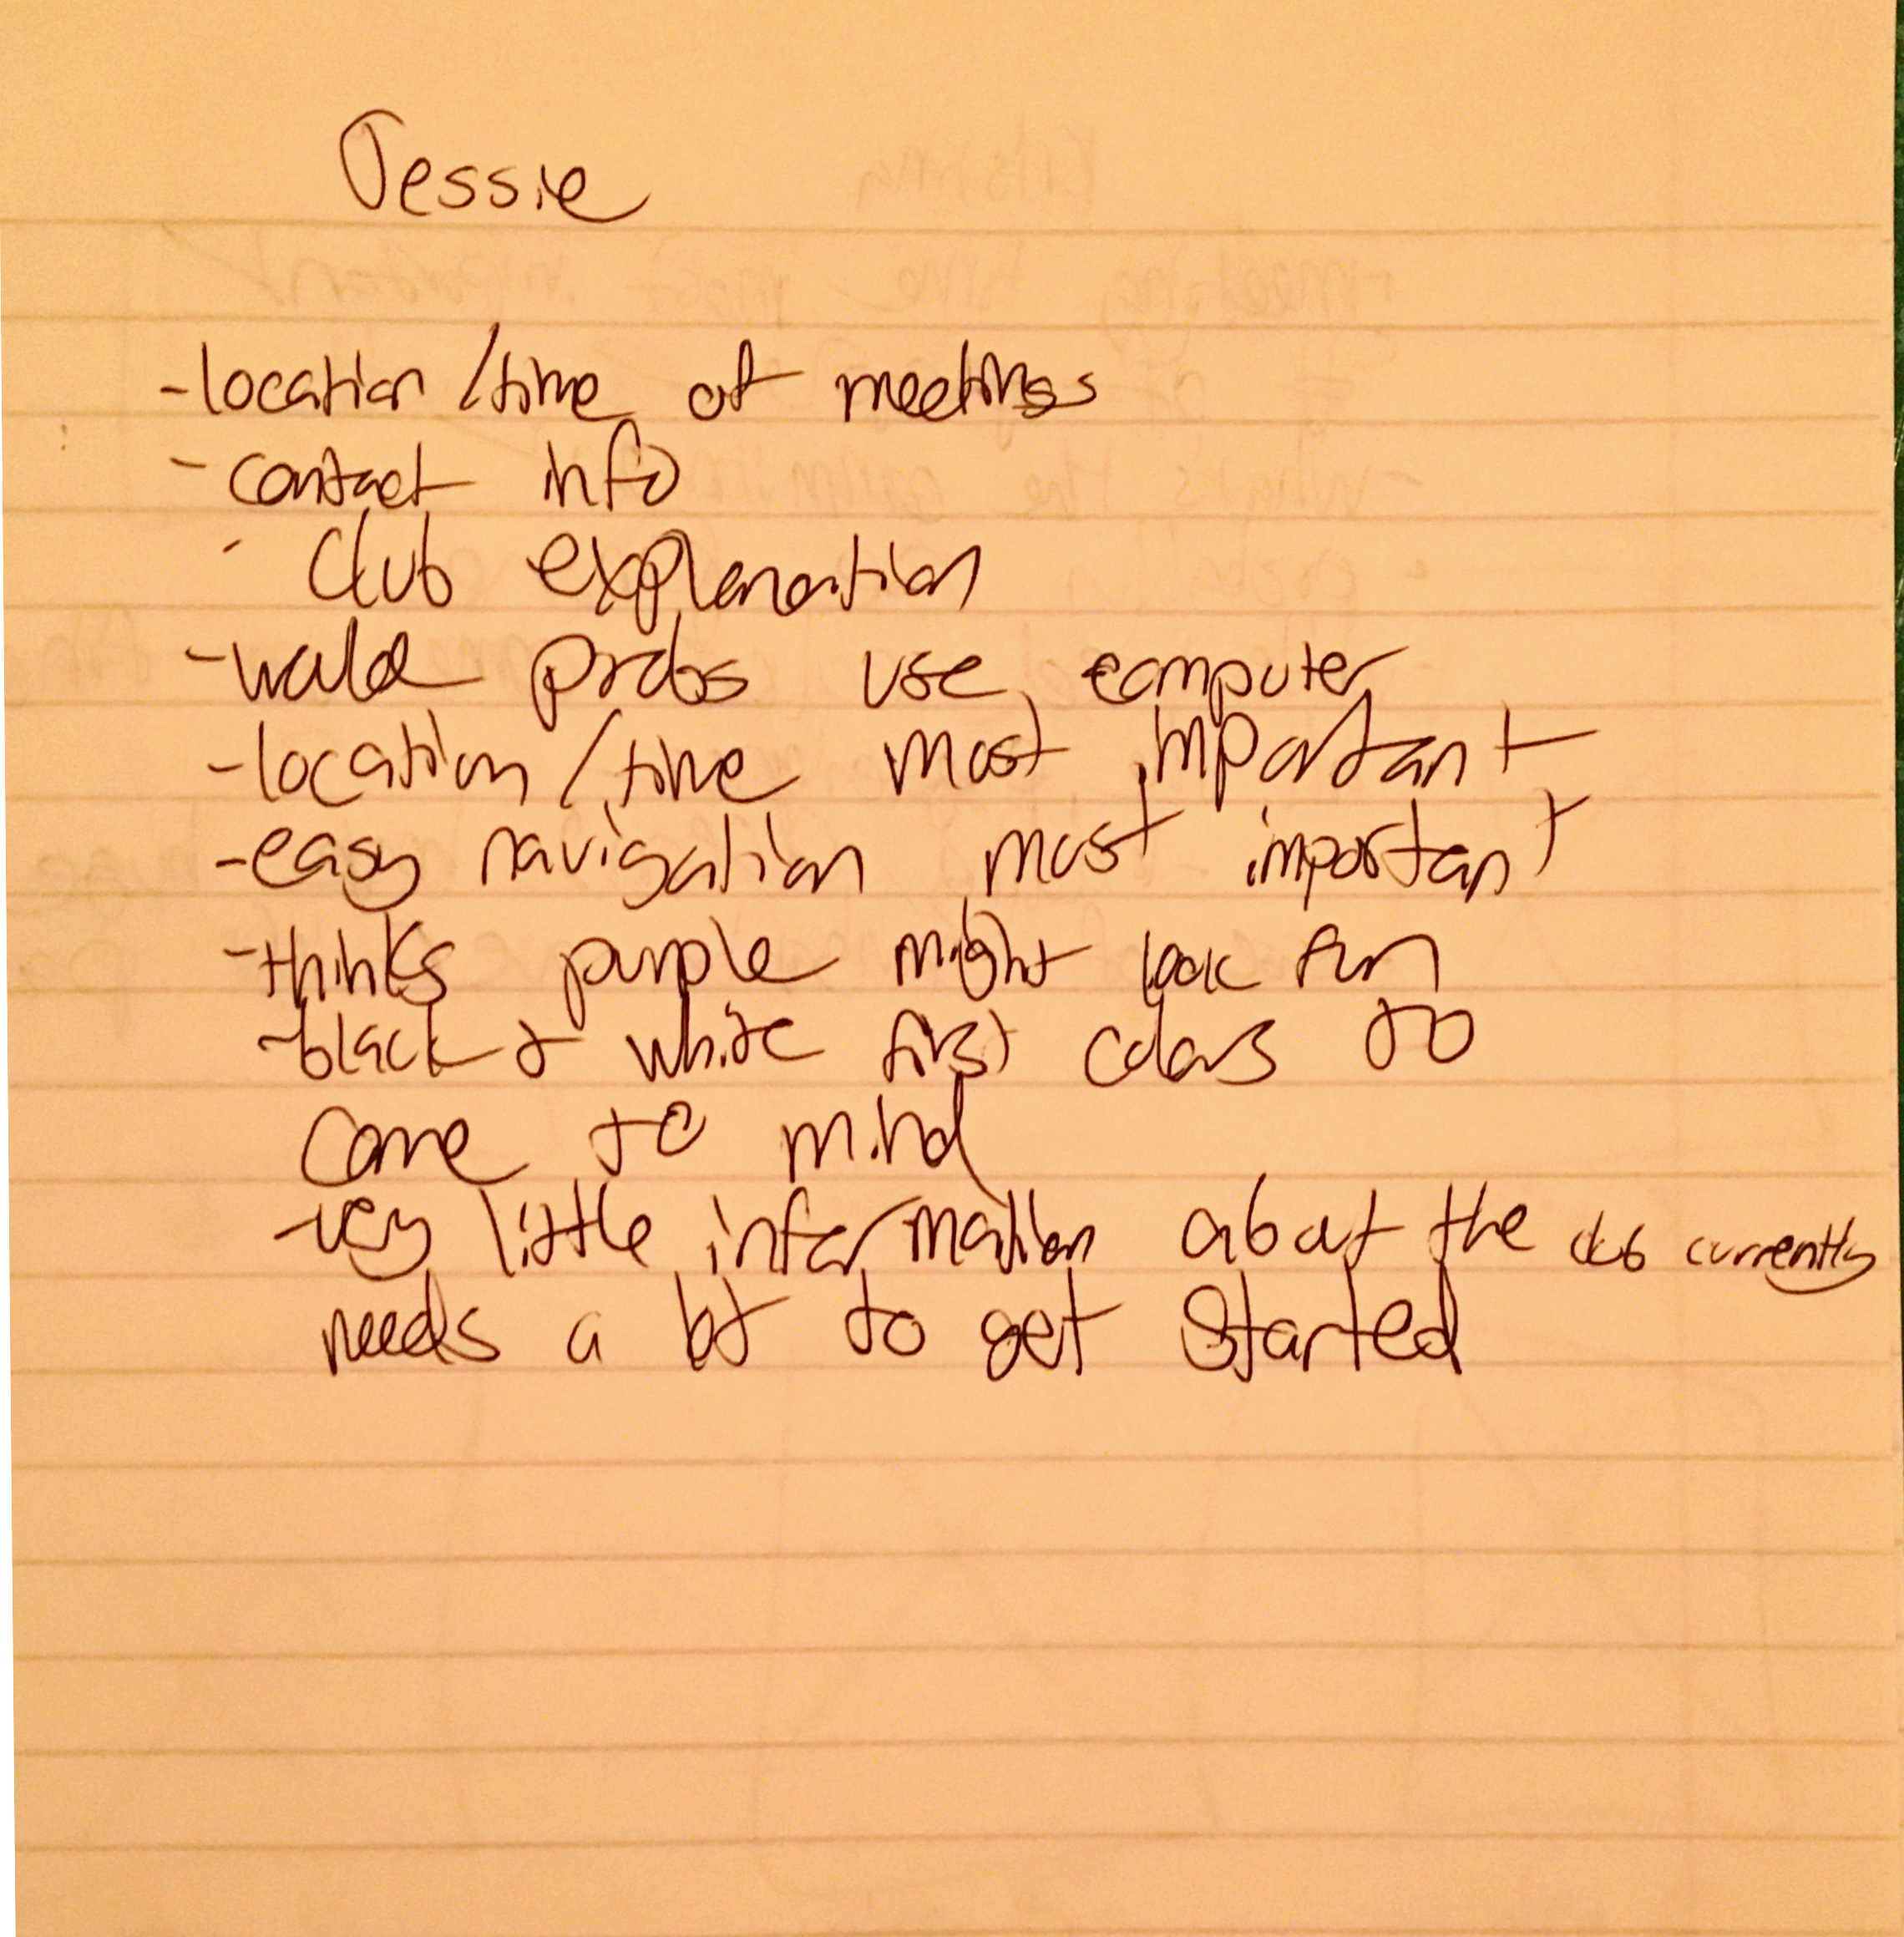 Jessie
-location/time of meetings
-contact info
- Club explanation
-would probs use computer
-location/time most important
-easy navigation most important
-thinks purple might look fun
-black & white first colors to
come to mind
-very little information about the club currently
needs a bit to get started